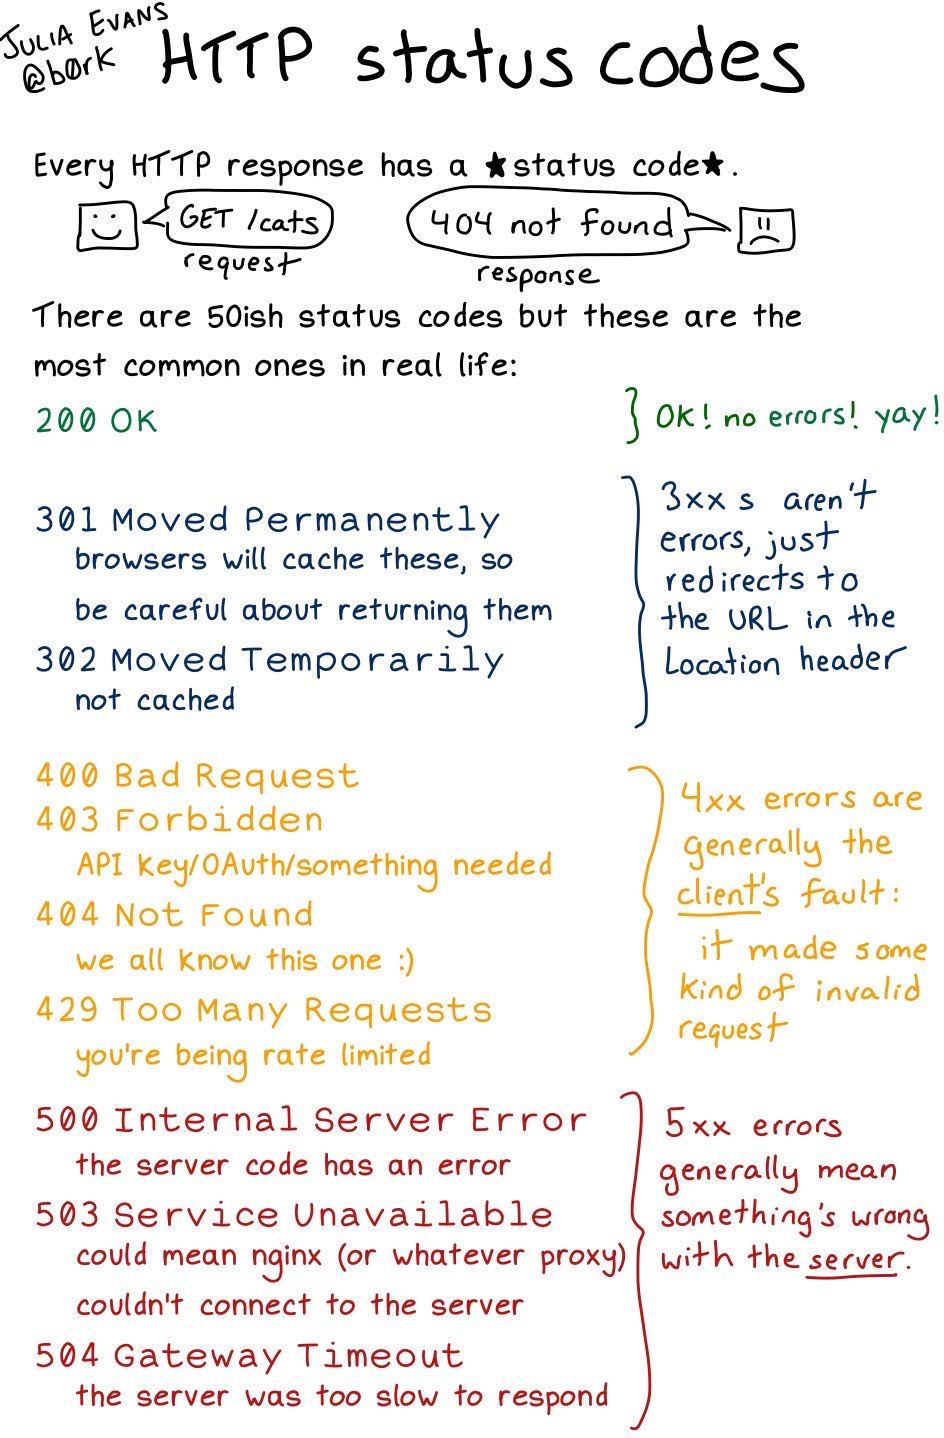 JULIA EVANS
@b0rk
HTTP status codes
Every HTTP response has a ★status code★.
GET /cats
request
404 not found
response
There are 50ish status codes but these are the
most common ones in real life:
200 OK
OK! no errors! yay!
301 Moved Permanently
browsers will cache these, so
be careful about returning them
302 Moved Temporarily
not cached
3xx s aren't
errors, just
redirects to
the URL in the
Location header
400 Bad Request
403 Forbidden
API key/OAuth/something needed
404 Not Found
we all know this one :)
429 Too Many Requests
you're being rate limited
4xx errors are
generally the
client's fault:
it made some
kind of invalid
request
500 Internal Server Error
the server code has an error
503 Service Unavailable
could mean nginx (or whatever proxy)
couldn't connect to the server
504 Gateway Timeout
the server was too slow to respond
5xx errors
generally mean
something's wrong
with the server.